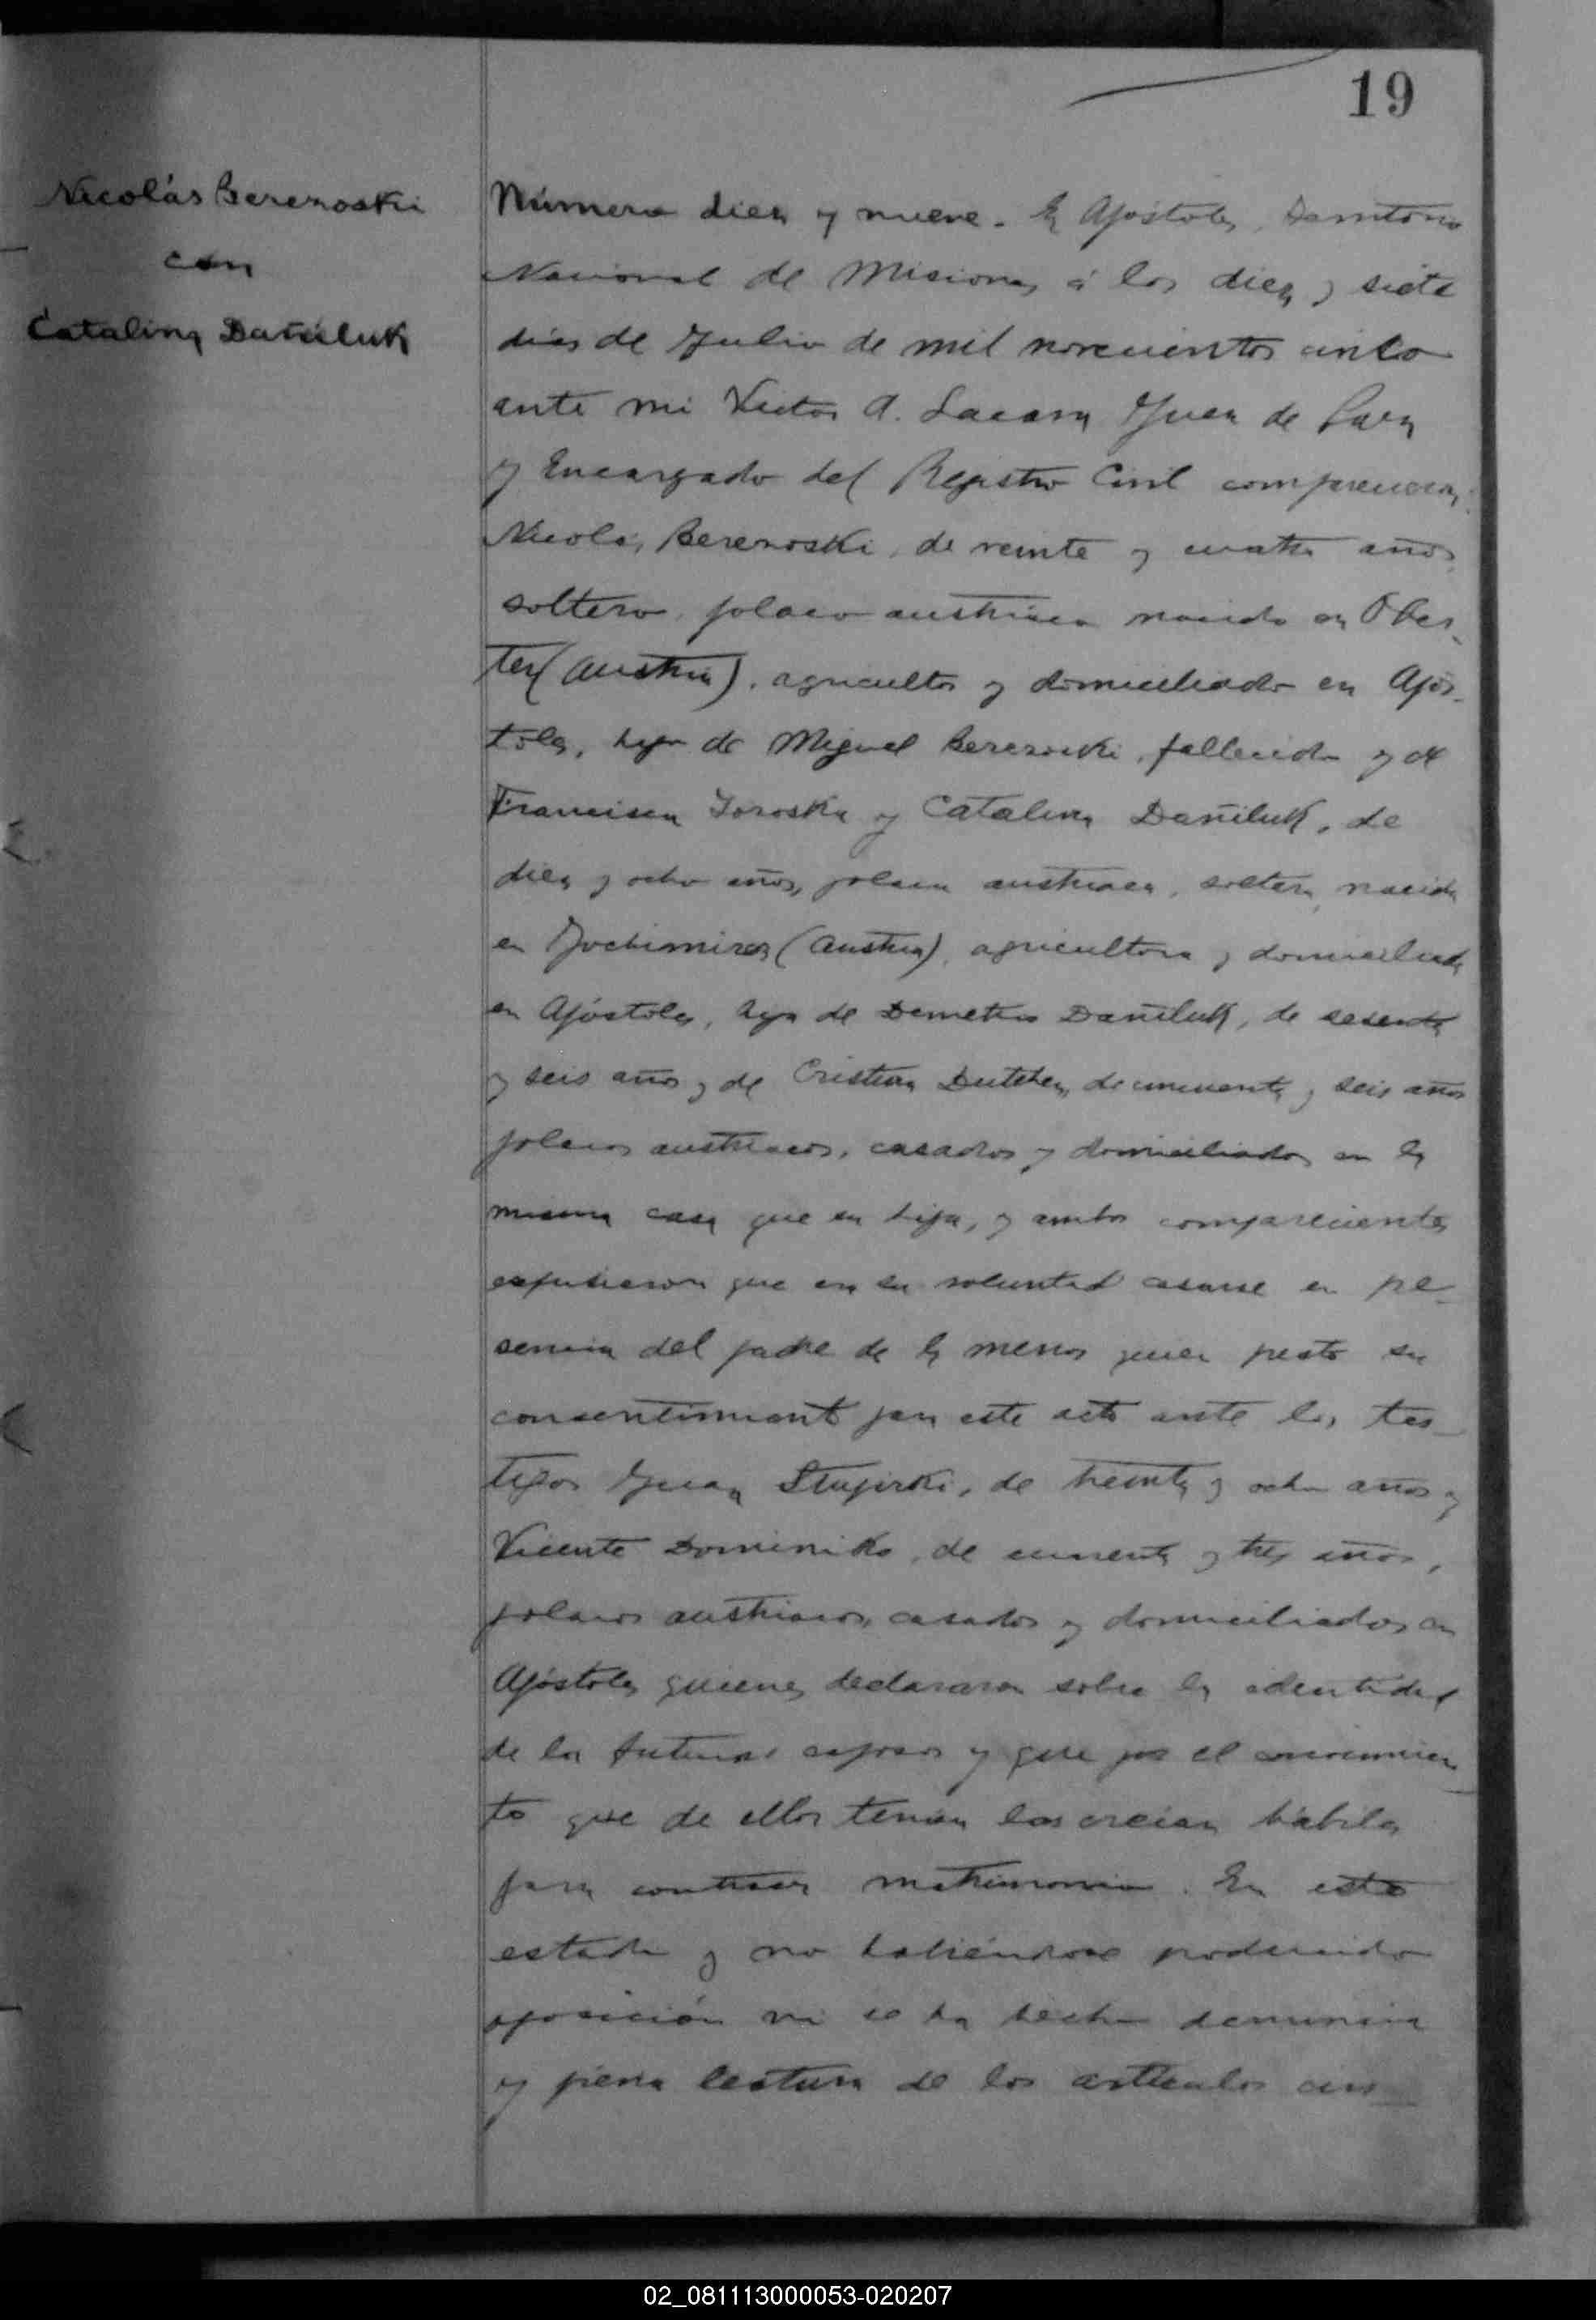 19
Nicolás Berezoski
con
Catalina Dañiluk
Número diez y nueve. En Apóstoles, Territorio
Nacional de Misiones á los diez y siete
dias de Julio de mil novecientos cinco
ante mi Victor A. Lacasa Juez de Paz
y Encargado del Registro Civil comparecen,
Nicolás Berezoski, de veinte y cuatro años,
soltero, polaco austriaco nacido en Ober-
ter (Austria), agricultor y domiciliado en Após-
toles, hijo de Miguel Berezoski, fallecido y de
Francisca Soroska y Catalina Dañiluk, de
diez y ocho años, polaca austriaca, soltera, nacida
en (Austria), agricultora y domiciliada
en Apóstoles, hija de Demetrio Dañiluk, de sesenta
y seis años y de Cristina de cincuenta y seis años
polacos austriacos, casados y domiciliados en la
misma casa que su hija, y ambos comparecientes
expusieron que era su voluntad casarse en pre-
sencia del padre de la menor quien prestó su
consentimiento para este acto ante los tes-
tigos Juan de treinta y ocho años y
Vicente Dominiko, de cincuenta y tres años,
polacos austriacos, casados y domiciliados en
Apóstoles quienes declararon sobre la identidad
de los futuros esposos y que por el conocimien-
to que de ellos tenian los creian hábiles
para contraer matrimonio. En este
estado y no habiéndose producido
oposición ni se ha hecho denuncia
y previa lectura de los artículos cin-
02_081113000053-020207